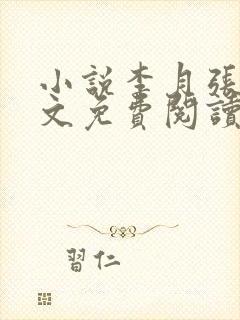 小説李月張
文免費閱讀
習仁